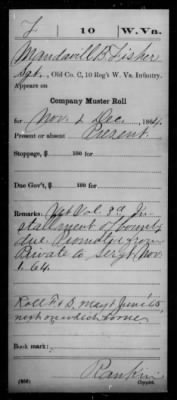 F | 10 | W. Va.
Mandavill B. Fisher
Sgt., Old Co. C, 10 Reg't W. Va. Infantry.
Appears on
Company Muster Roll
for Nov. & Dec., 1864.
Present or absent Present
Stoppage, $ 100 for
Due Gov't, $ 100 for
Remarks: Vet Vol. 3rd In
stallment of bounty
due Promoted from
Private to Sergt Nov.
1. 64.
Roll F & S, May & June 65,
next on which borne
Book mark:
Rankin
(356) Copyist.